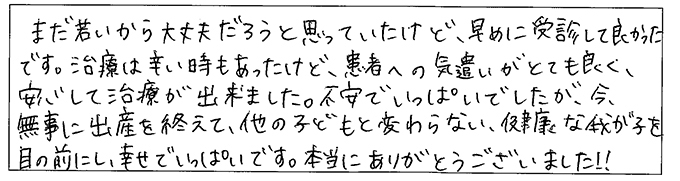 まだ若いから大丈夫だろうと思っていたけど、早めに受診して良かった
です。治療は辛い時もあったけど、患者への気遣いがとても良く、
安心して治療が出来ました。不安でいっぱいでしたが、今、
無事に出産を終えて、他の子どもと変わらない、健康な我が子を
目の前にし、幸せでいっぱいです。本当にありがとうございました!!